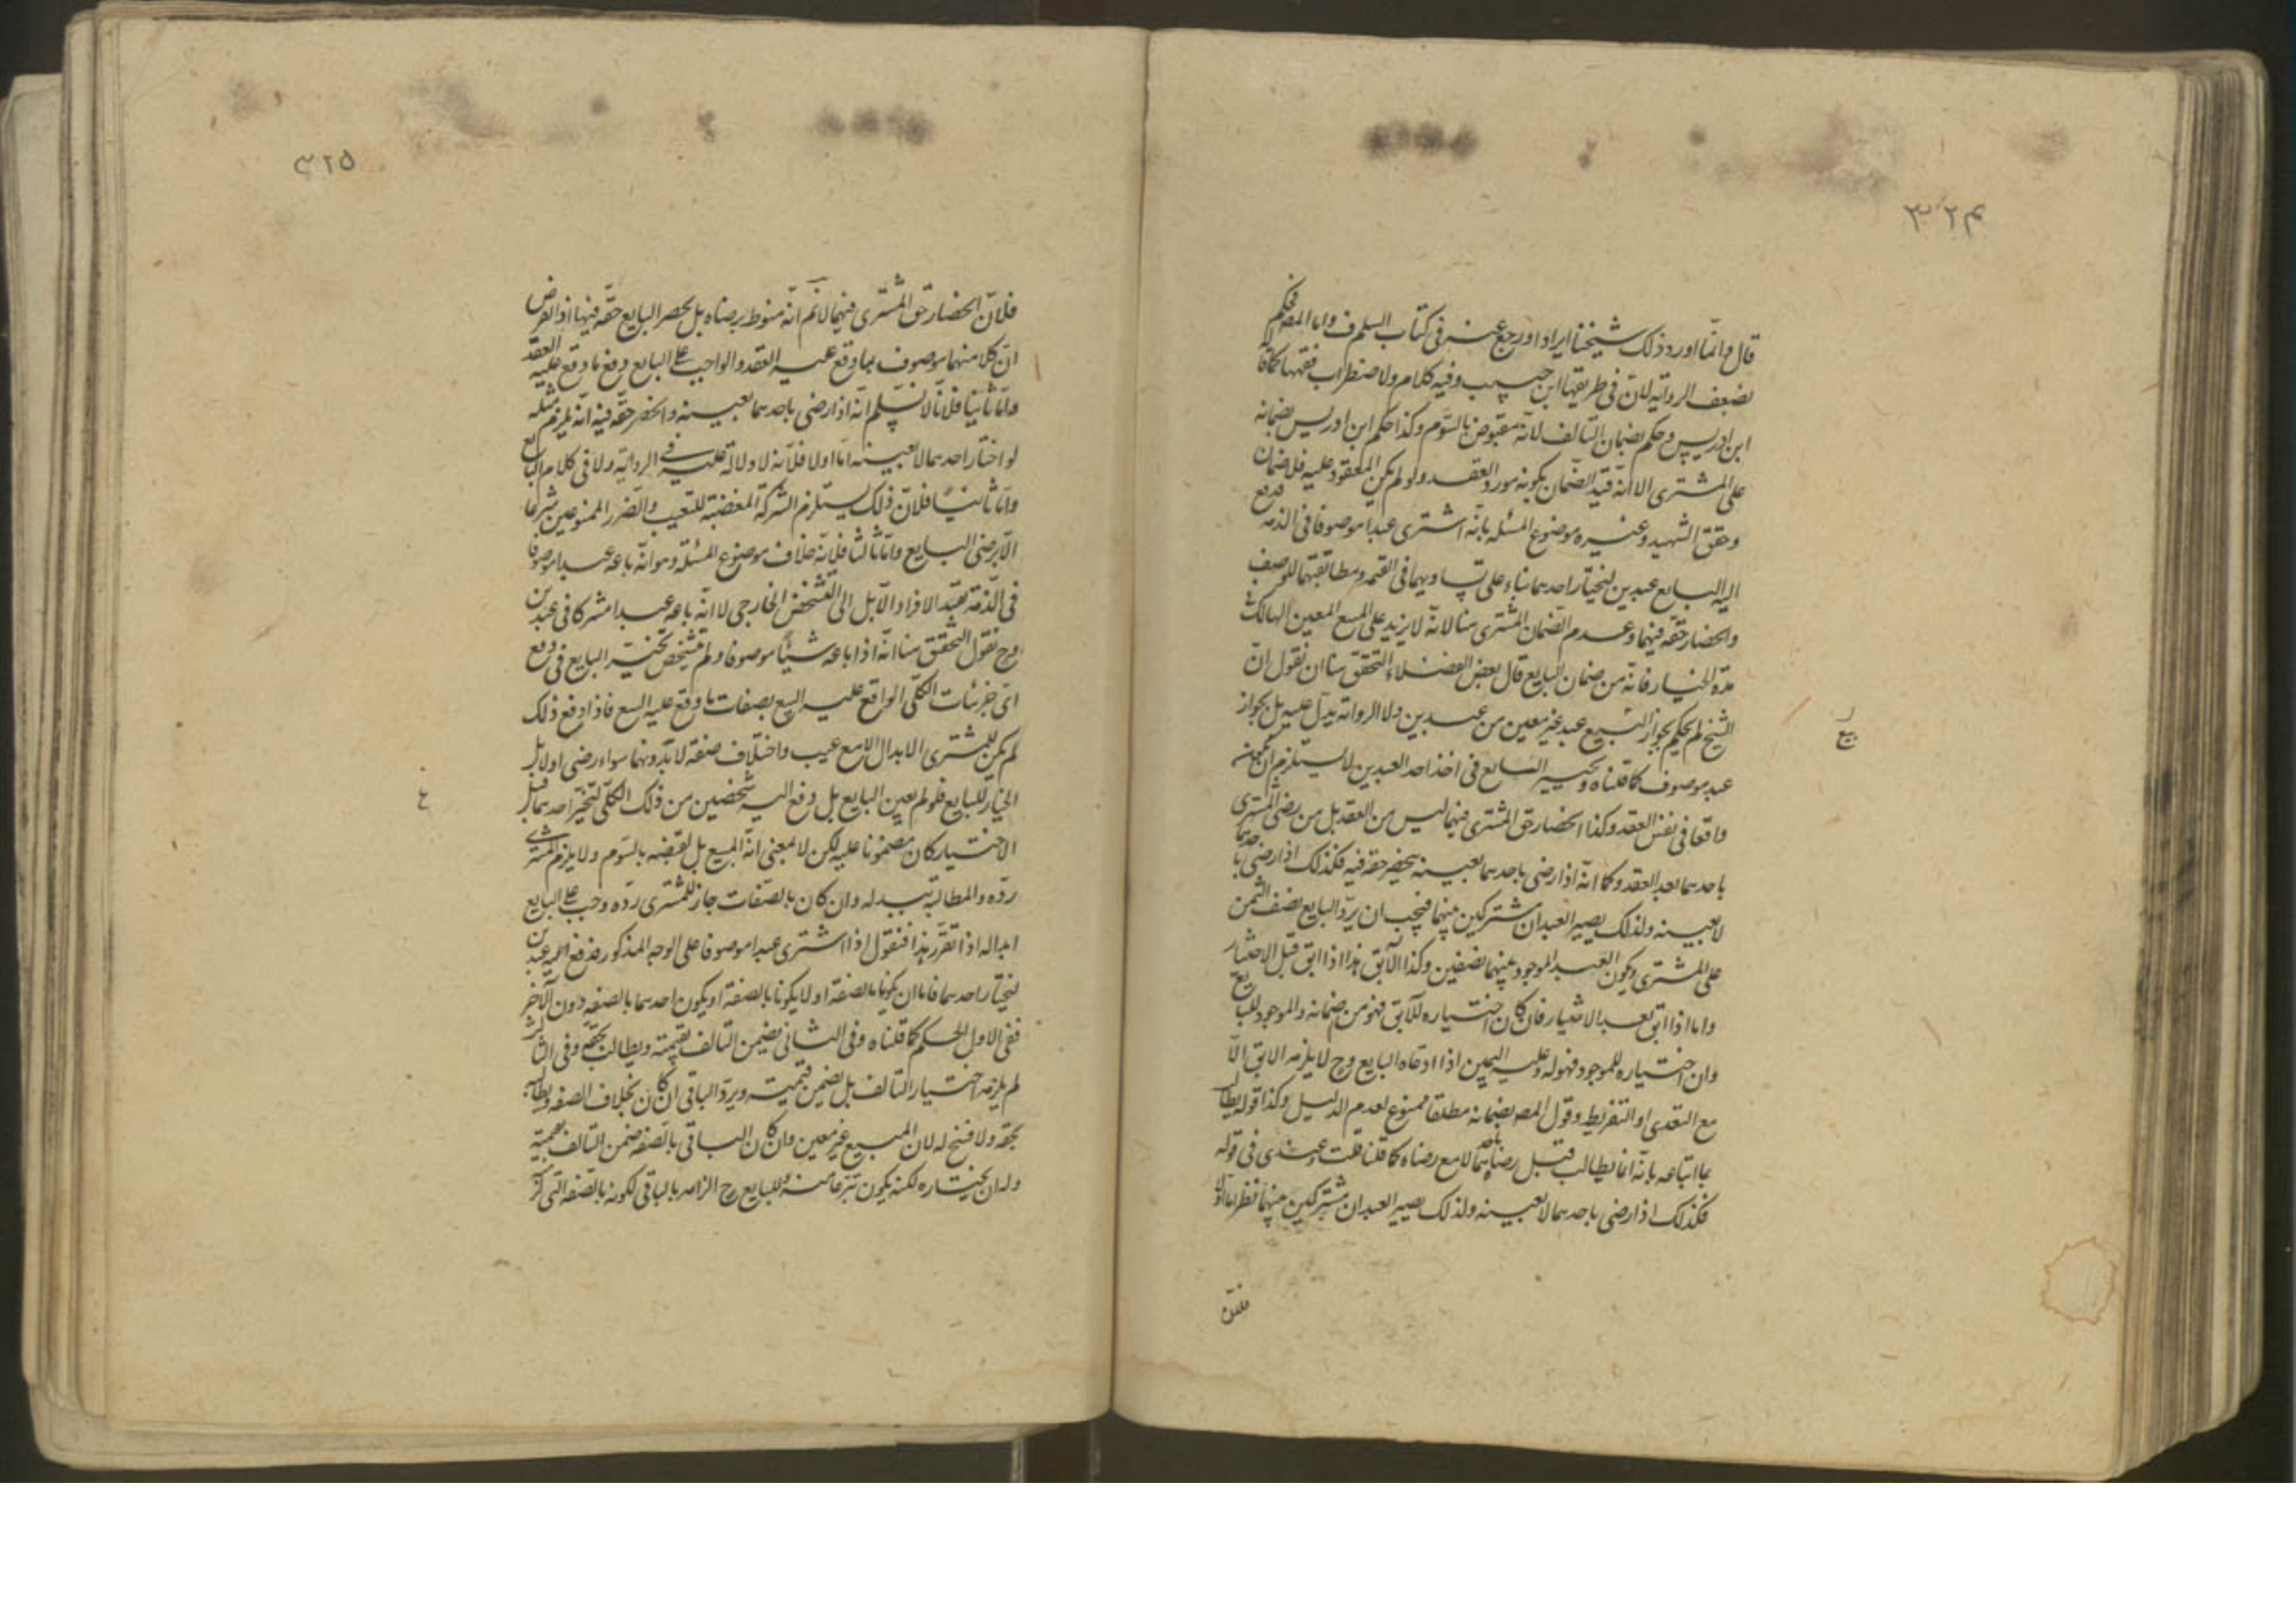 ٣٢٤
قال وانما اورد ذلك شيخنا ايرادا ورجع عنه في كتاب السلم ف واما المصـ فحكم
بضعف الرواية لان في طريقها ابن حبيب وفيه كلام ولاضطراب فقهها كما قا
ابن ادريس وحكم بضمان التالف لانه مقبوض بالسوم وكذا حكم ابن ادريس بضمانه
على المشترى الا انه قيد الضمان بكونه مورد العقد ولو لم يكن المعقود عليه فلا ضمان
وحقق الشهيد وغيره موضوع المسئلة بانه اشترى عبدا موصوفا في الذمة فدفع
اليه البايع عبدين ليختار احدهما بناء على تساويهما في القيمة ومطابقتهما للوصف
وانحصار حقه فيهما وعدم الضمان المشترى هنا لانه لا يزيد على المبيع المعين الهالك في
مدة الخيار فانه من ضمان البايع قال بعض الفضلاء التحقق هنا ان نقول ان
الشيخ لم يحكم بجواز البيع عبد غير معين من عبدين ولا الرواية يدل عليه بل بجواز
عبد موصوف كما قلناه وتخيير البايع في اخذ احد العبدين لا يستلزم ان يكون
واقعا في نفس العقد وكذا انحصار حق المشترى فيهما ليس من العقد بل من رضى المشترى
باحدهما بعد العقد وكما انه اذا رضى باحدهما بعينه ينحصر حقه فيه فكذلك اذا رضى باحدهما
لا بعينه ولذلك يصير العبدان مشتركين بينهما فيجب ان يرد البايع نصف الثمن
على المشترى ويكون العبد الموجود بينهما نصفين وكذا الآبق هذا اذا ابق قبل الاختيار
واما اذا ابق بعد الاختيار فان كان اختياره للآبق فهو من ضمانه والموجود للبايع
وان اختياره للموجود فهو له وعليه اليمين اذا ادعاه البايع وح لا يلزمه الابق الا
مع التعدى او التفريط وقول المصـ بضمانه مطلقا ممنوع لعدم الدليل وكذا قوله يطالب
بما ابتاعه بانه انما يطالب قبل رضاه باحدهما لا مع رضاه كما قلنا قلت وعندى في قوله
فكذلك اذا رضى باحدهما لا بعينه ولذلك يصير العبدان مشتركين بينهما نظر اما اولا
فلان
بيع
٣٢٥
فلان انحصار حق المشترى فيهما لا نم انه منوط برضاه بل بحصر البايع حقه فيها اذ الفرض
ان كلا منهما موصوف بما وقع عليه العقد والواجب على البايع دفع ما وقع عليه العقد
واما ثانيا فلانا لا نسلم انه اذا رضى باحدهما بعينه وانحصر حقه فيه انه يلزم مثله
لو اختار احدهما لا بعينه اما اولا فلانه لا دلالة عليه في الرواية ولا في كلام البايع
واما ثانيا فلان ذلك يستلزم الشركة المفضية للتعيب والضرر الممنوعين شرعا
الا برضى البايع واما ثالثا فلانه خلاف موضوع المسئلة وهو انه باعه عبدا موصوفا
في الذمة بقيد الافراد الآيل الى التشخص الخارجى لا انه باعه عبدا مشتركا في عبدين
وح نقول التحقق هنا انه اذا باعه شيئا موصوفا ولم يتشخص تخير البايع في دفع
اى جزئيات الكلى الواقع عليه البيع بصفات ما وقع عليه البيع فاذا دفع ذلك
لم يكن للمشترى الابدال الا مع عيب واختلاف صفة لا بدونهما سواء رضى او لا بل
الخيار للبايع فلو لم يعين البايع بل دفع اليه شخصين من ذلك الكلى لتخير احدهما قبل
الاختيار كان مضمونا عليه لكن لا بمعنى انه المبيع بل لقبضه بالسوم ولا يلزم المشترى
رده والمطالبة ببدله وان كان بالصفات جاز للمشترى رده وجب على البايع
ابداله اذا تقرر هذا فنقول اذا اشترى عبدا موصوفا على الوجه المذكور فدفع اليه عبدين
ليختار احدهما فاما ان يكونا بالصفة او لا يكونا بالصفة او يكون احدهما بالصفة دون الآخر
ففى الاول الحكم كما قلناه وفى الثانى يضمن التالف بقيمته ويطالب بحقه وفى الثالث
لم يلزمه اختيار التالف بل يضمن قيمته ويرد الباقى ان كان بخلاف الصفة ويطالبه
بحقه ولا فسخ له لان المبيع غير معين وان كان الباقى بالصفة ضمن التالف بقيمته
وله ان يختاره لكنه يكون تبرعا منه وللبايع ح الزامه بالباقى لكونه بالصفة التى